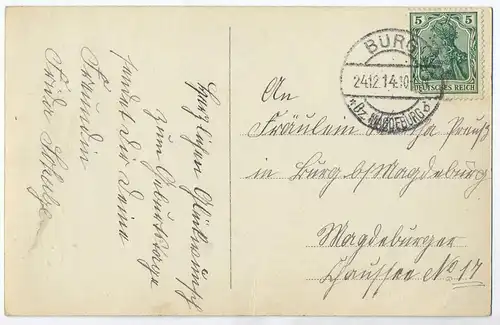 Herzlichen Glückwunsch
zum Geburtstage
sendet Dir Deine
Freundin
Frida Schulze
5 5
DEUTSCHES REICH
BURG
24.12.14.10
* Bz. MAGDEBURG b
An
Fräulein Preuß
in Burg b/Magdeburg
Magdeburger
Chaussee No 17